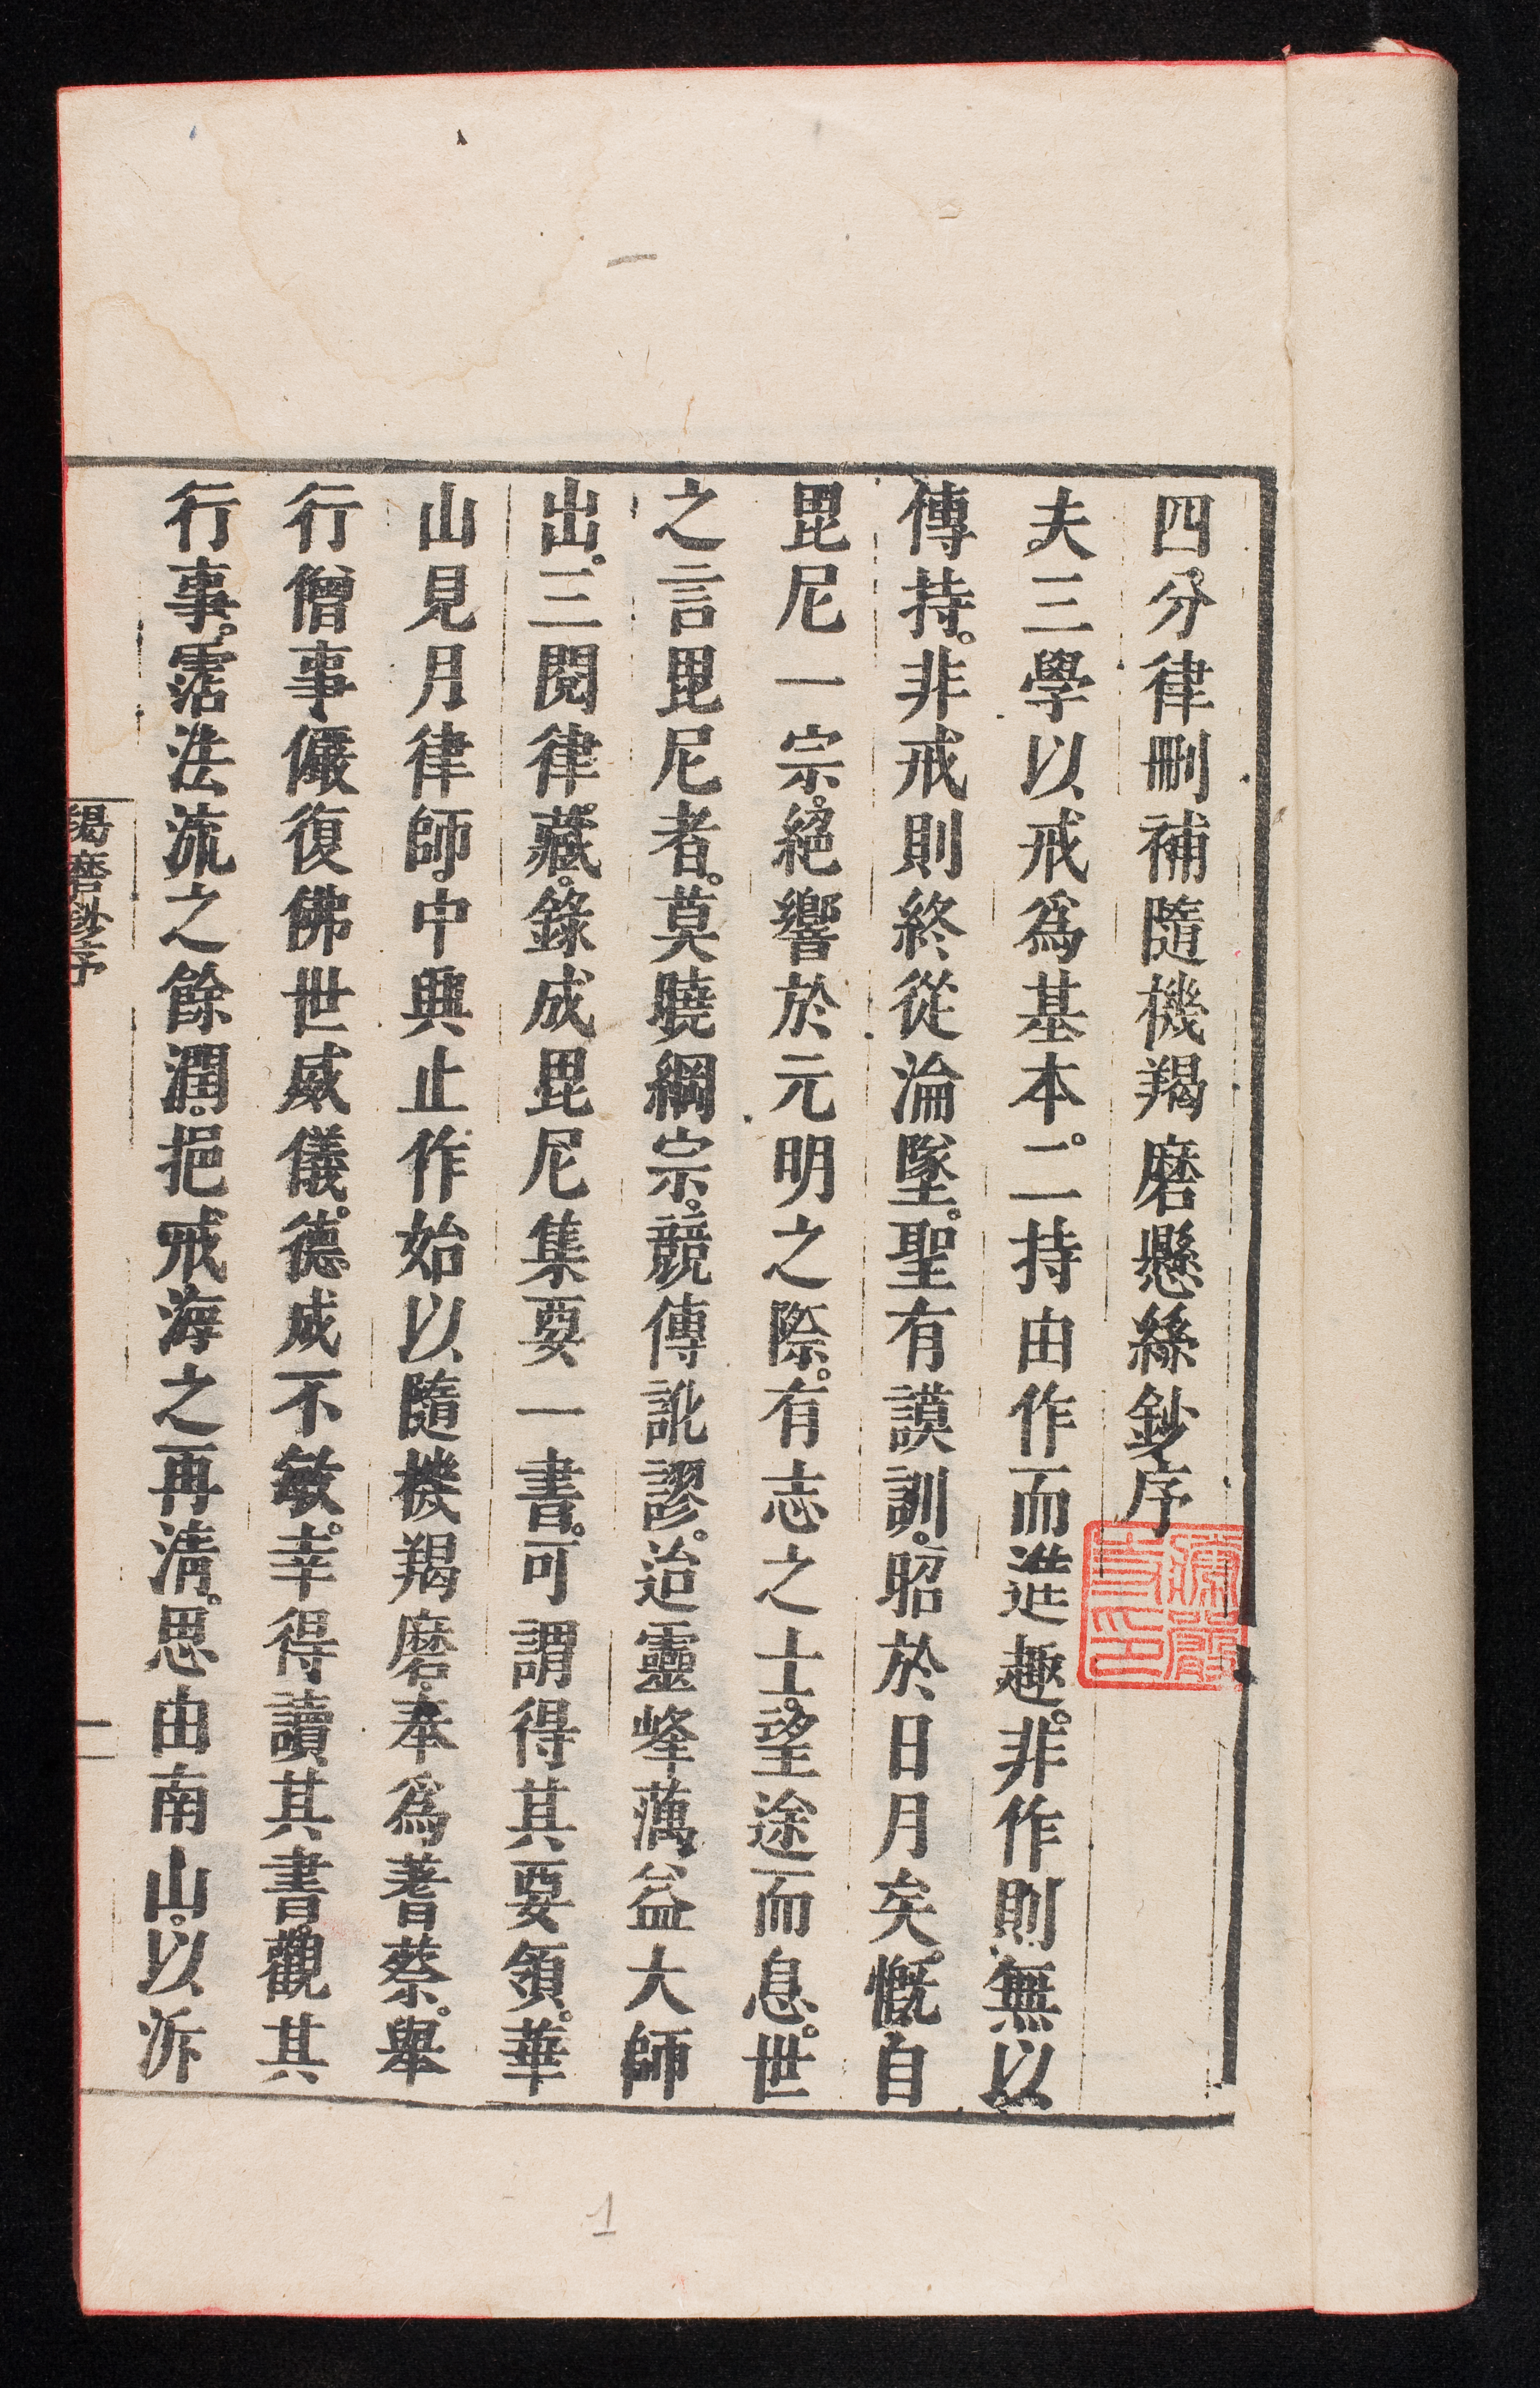 四分律刪補隨機羯磨懸絲鈔序
夫三學以戒為基本。二持由作而進趣。非作則無以
傳持。非戒則終從淪墜。聖有謨訓。昭於日月矣。慨自
毘尼一宗。絕響於元明之際。有志之士。望途而息。世
之言毘尼者。莫曉綱宗。競傳訛謬。迨靈峰蕅益大師
出。三閱律藏。錄成毘尼集要一書。可謂得其要領。華
山見月律師。中興止作。始以隨機羯磨。奉為蓍蔡。舉
行僧事。儼復佛世威儀。德成不敏。幸得讀其書。觀其
行事。霑法流之餘潤。挹戒海之再清。思由南山。以泝
羯磨鈔序
一
1